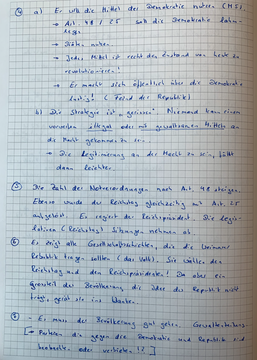 ④ a) Er will die Mittel der Demokratie nutzen (M5).
→ Art. 48 / 25 soll die Demokratie lahm-
legen
→ Diäten nutzen.
→ Jedes Mittel ist recht den Zustand von heute zu
revolutionieren!
→ Er macht sich öffentlich über die Demokratie
lustig! (Feind der Republik)
b) Die Strategie ist "gerissen". Niemand kann einem
vorwerfen illegal oder mit gewaltsamen Mitteln an
die Macht gekommen zu sein.
→ Die Legitimierung an der Macht zu sein, fällt
dann leichter.
⑤ Die Zahl der Notverordnungen nach Art. 48 steigen.
Ebenso wurde der Reichstag gleichzeitig mit Art. 25
aufgelöst. Es regiert der Reichspräsident. Die Legis-
lativen (Reichstag) Sitzungen nehmen ab.
⑥ Es zeigt alle Gesellschaftsschichten, die die Weimarer
Republik tragen sollten (das Volk). Sie wählen den
Reichstag und den Reichspräsidenten! Da aber ein
Großteil der Bevölkerung die Idee der Republik nicht
trägt, gerät sie ins Wanken.
- Es muss der Bevölkerung gut gehen.
[→ Parteien die gegen die Demokratie und Republik sind
beobachten oder verbieten!?]